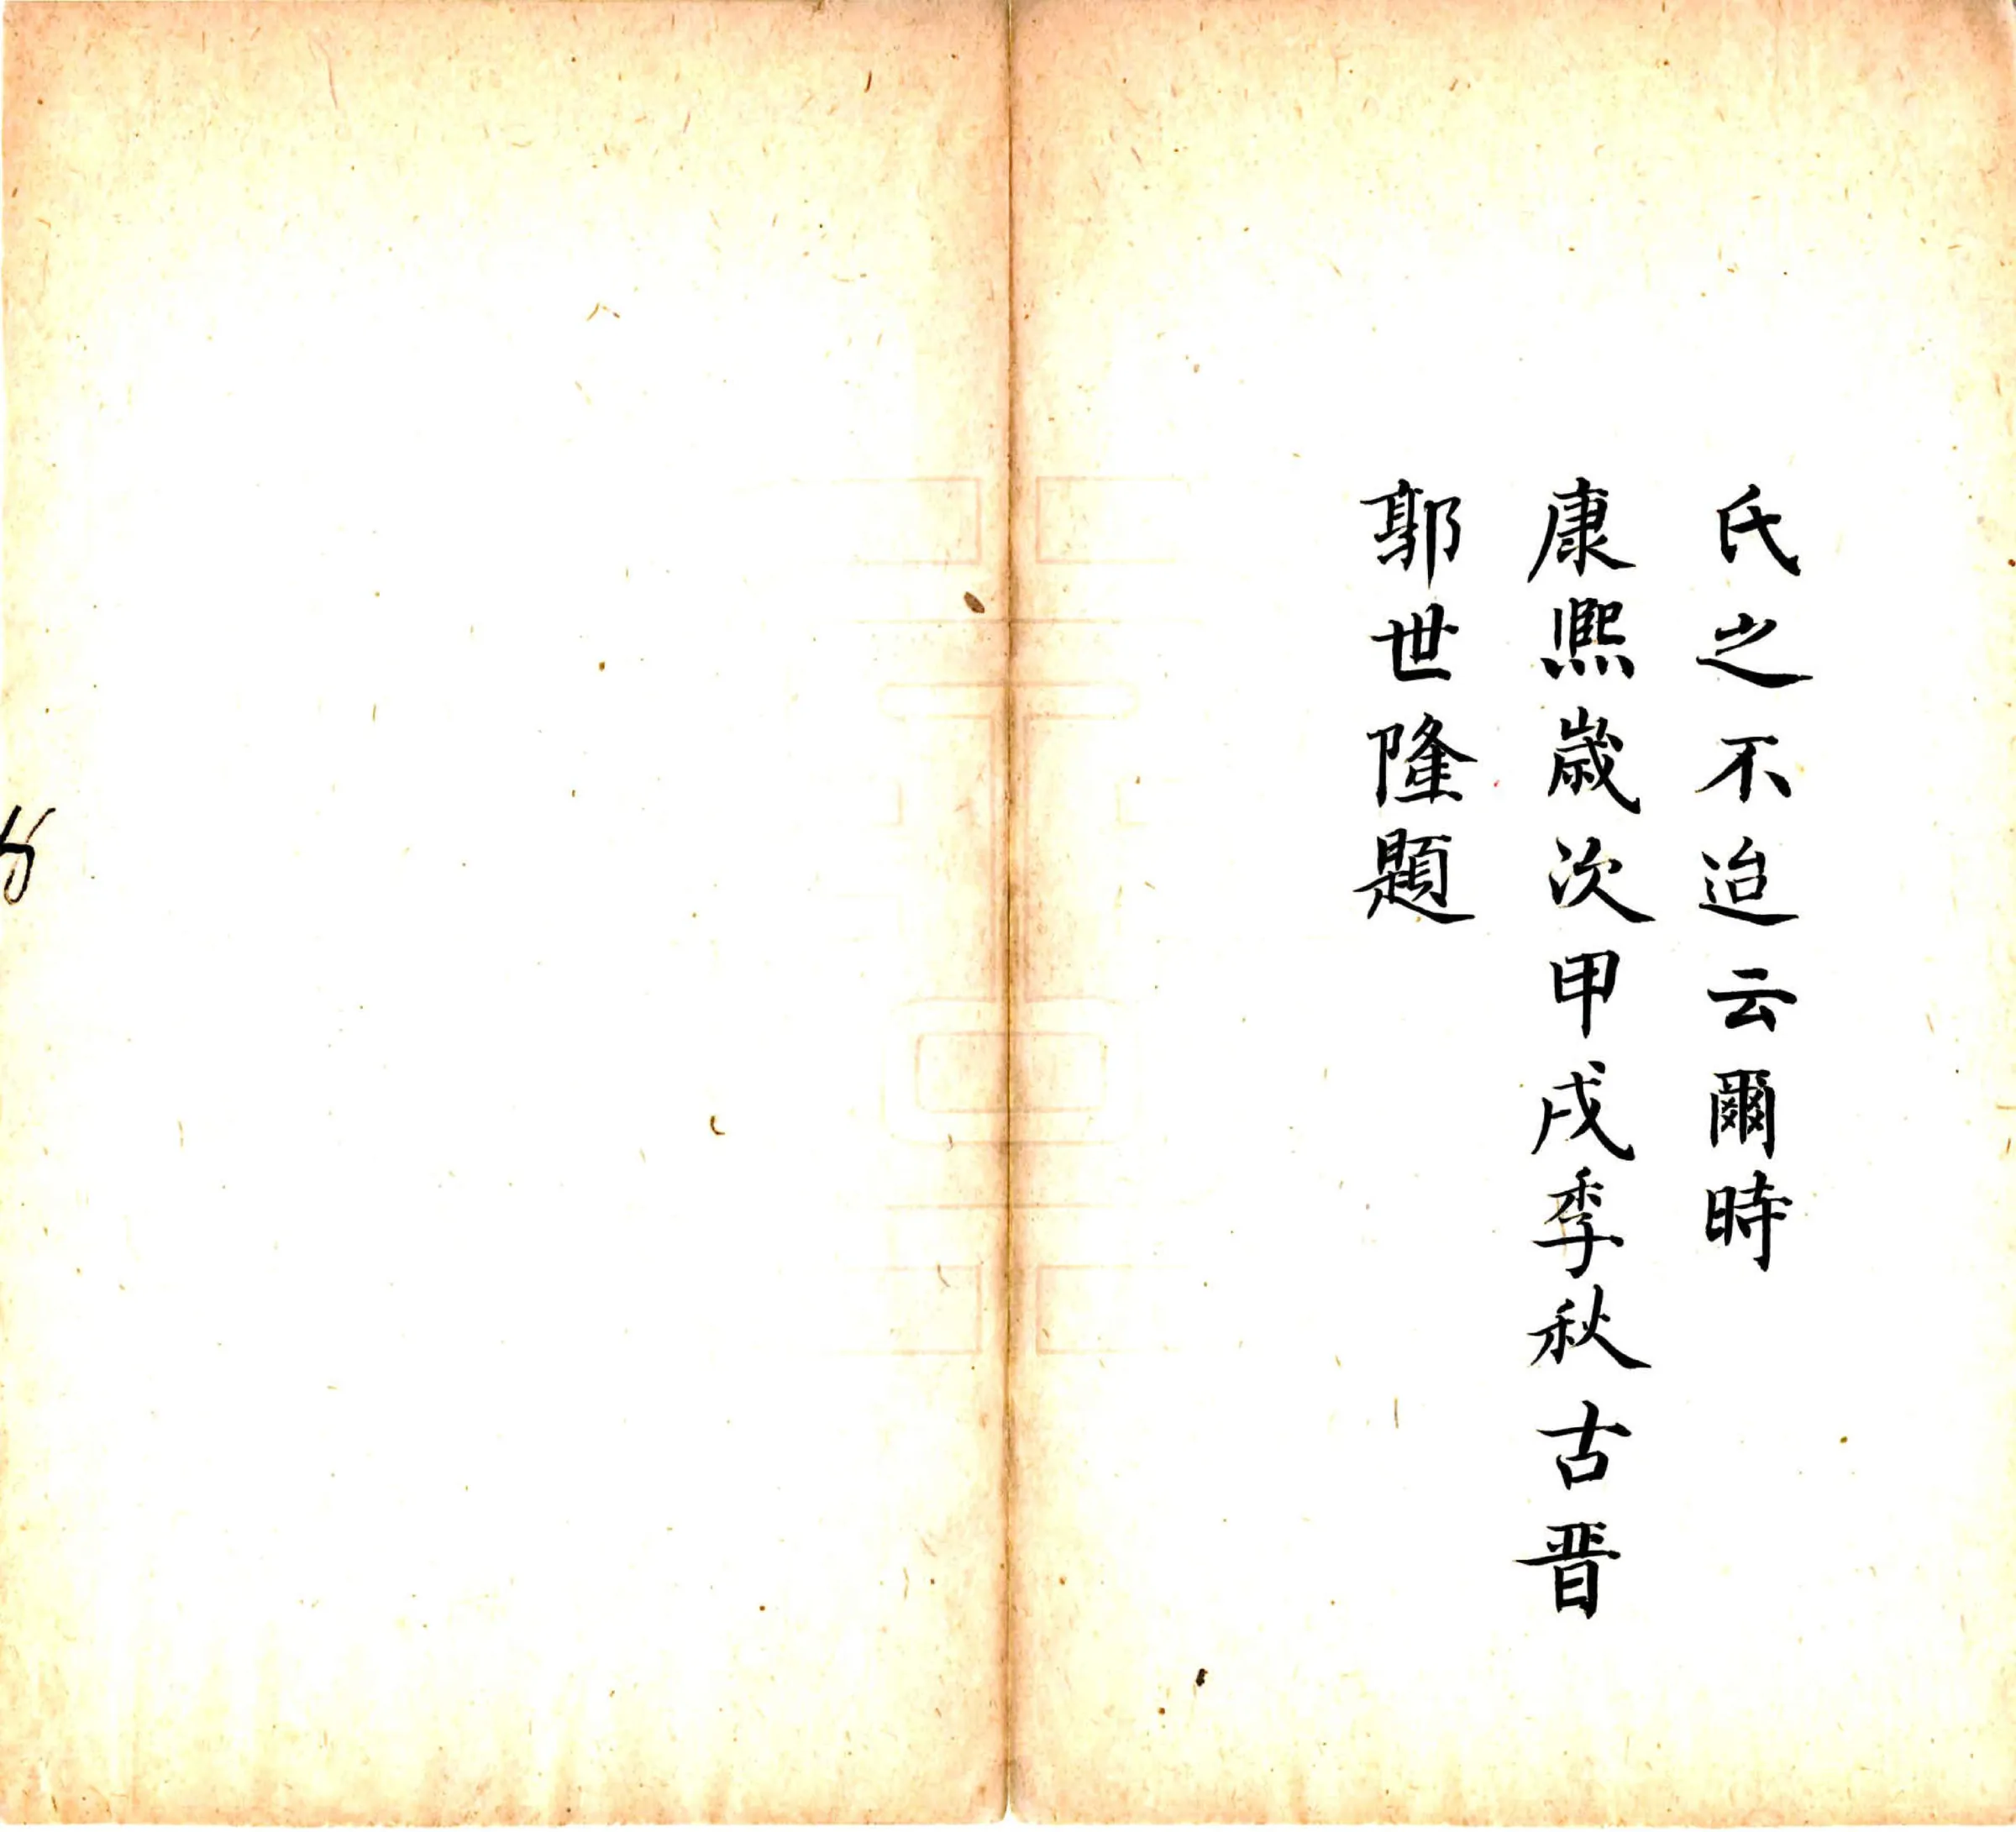 氏之不迨云爾時
康熈歲次甲戌季秋古晋
郭世隆題